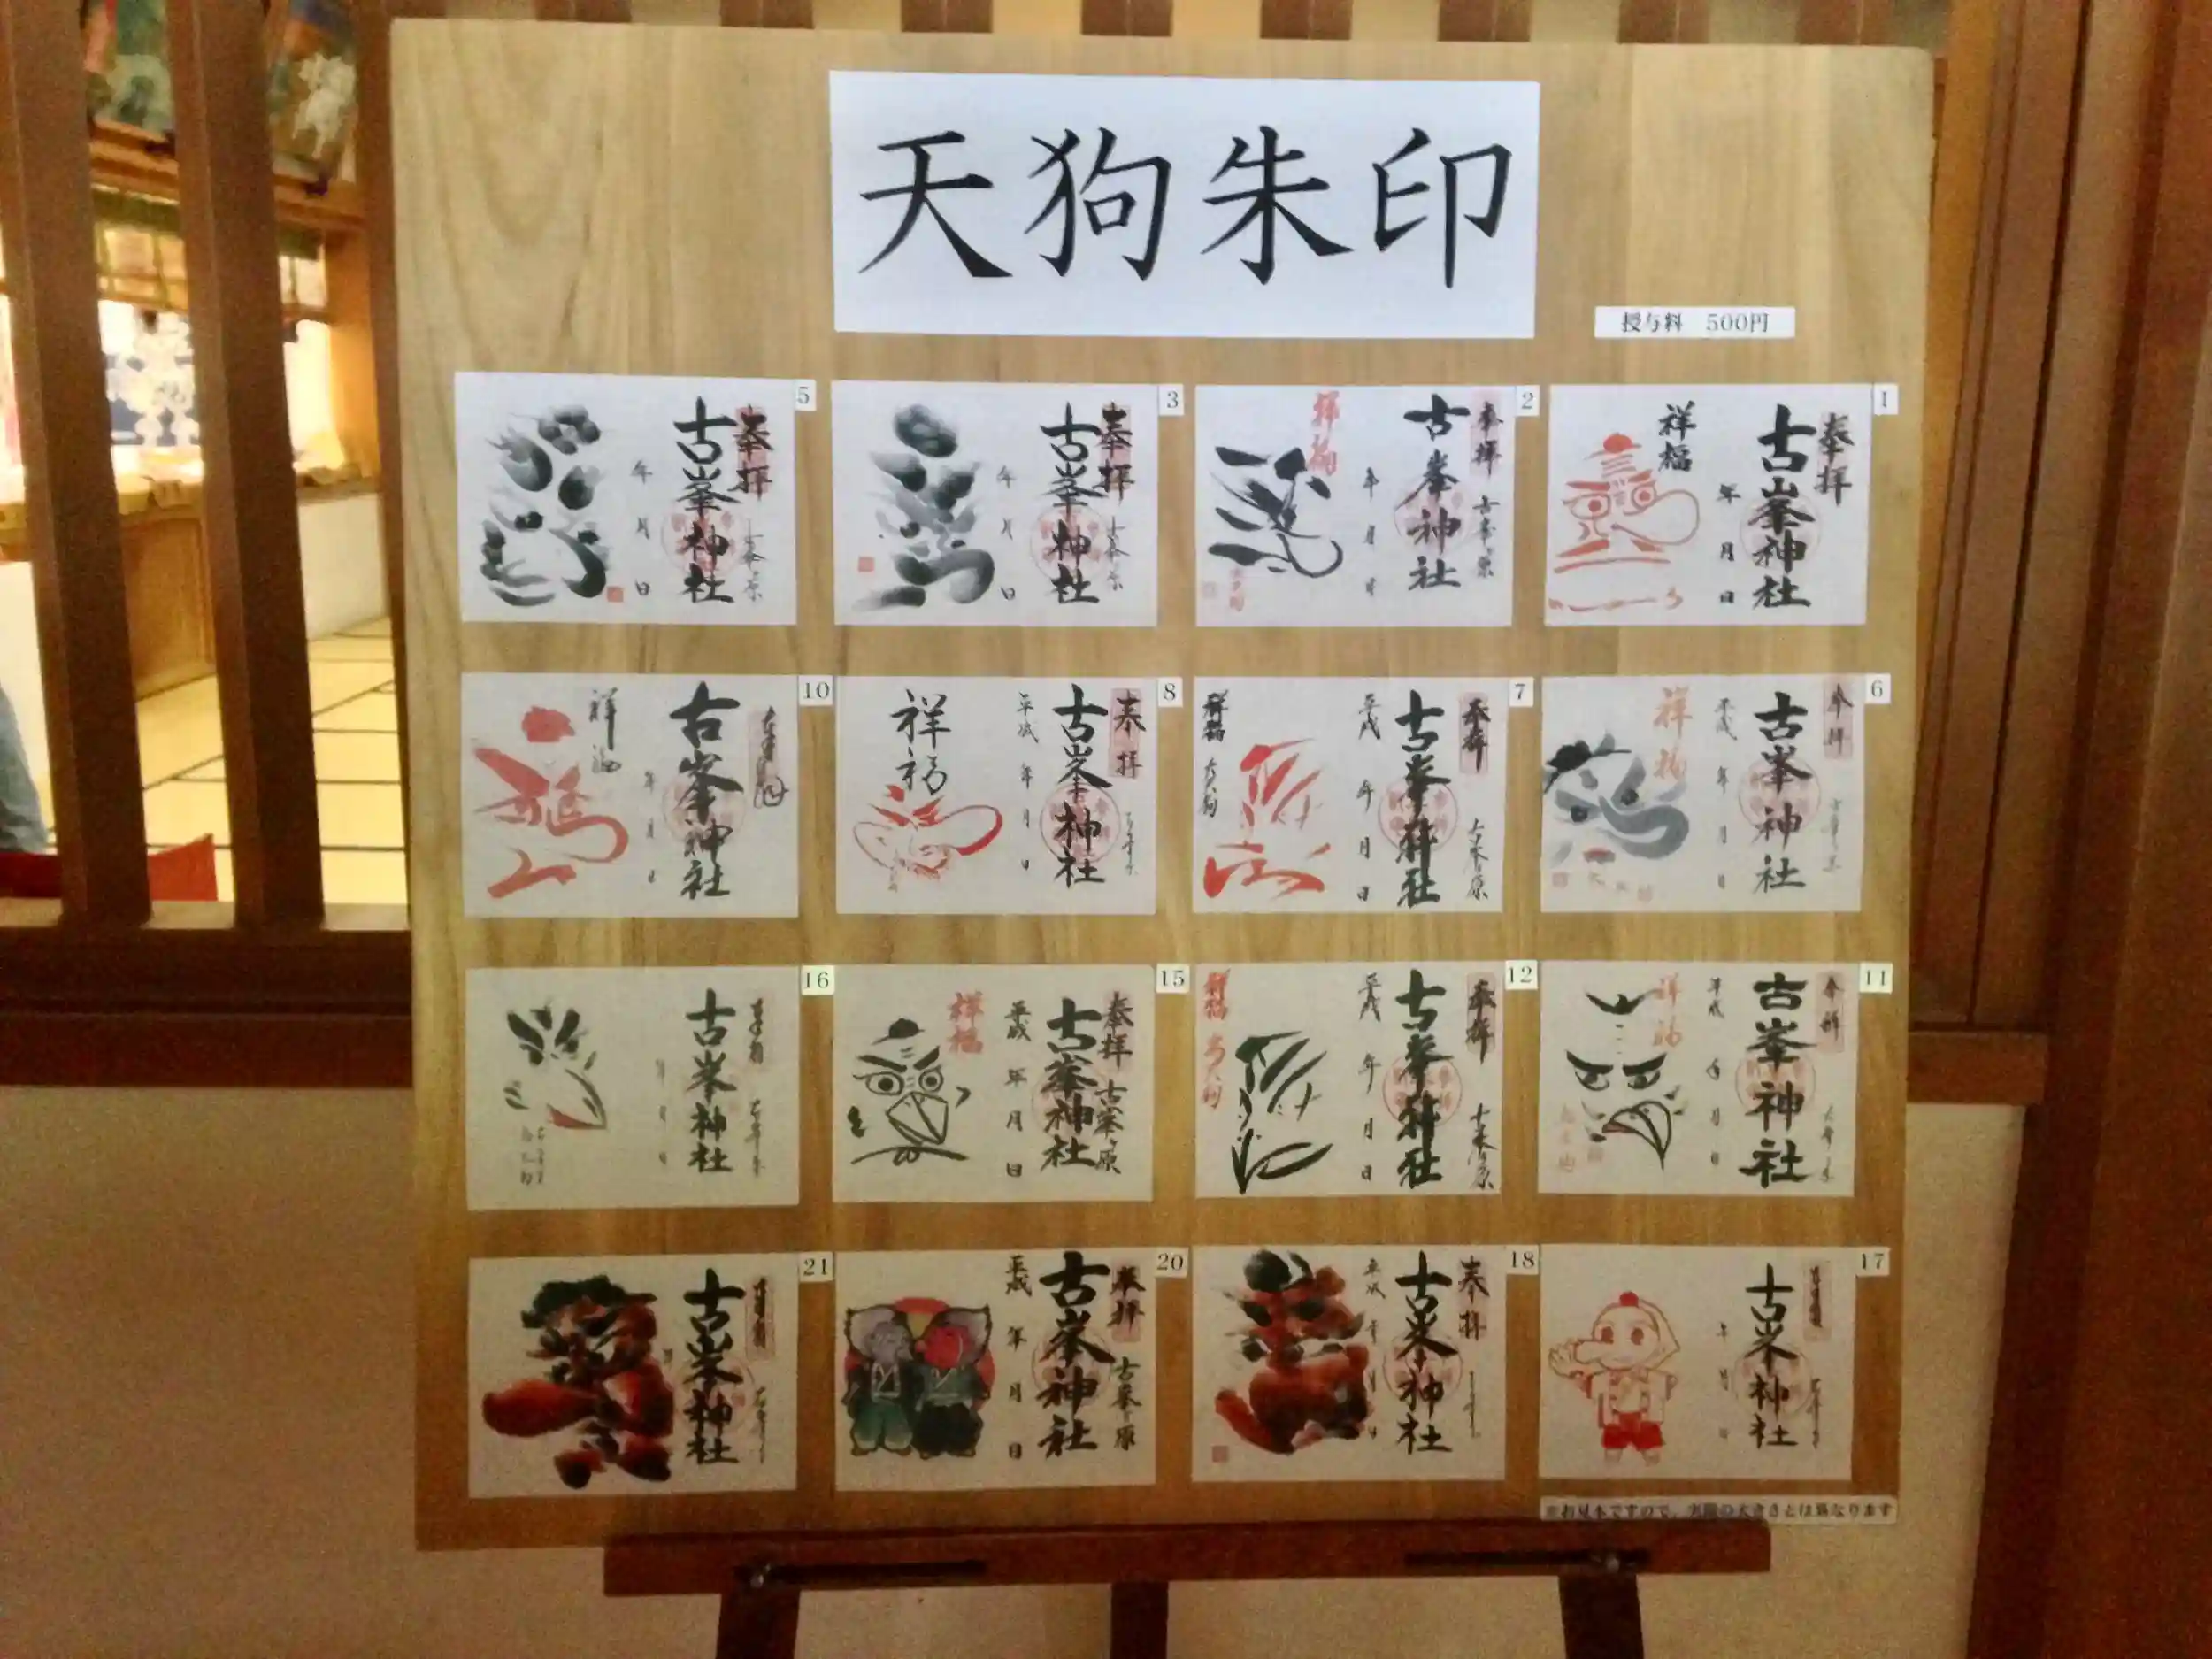 天狗朱印
授与料 500円
1
奉拝
古峯神社
祥福
年 月 日
2
奉拝
古峯ヶ原
古峯神社
年 月 日
祥福
3
奉拝
古峯ヶ原
古峯神社
年 月 日
5
奉拝
古峯ヶ原
古峯神社
年 月 日
6
奉拝
古峯神社
平成 年 月 日
祥福
7
奉拝
古峯ヶ原
古峯神社
平成 年 月 日
祥福
8
奉拝
古峯神社
平成 年 月 日
祥福
10
古峯神社
年 月 日
祥福
11
奉拝
古峯神社
平成 年 月 日
祥福
12
奉拝
古峯ヶ原
古峯神社
平成 年 月 日
祥福
15
奉拝
古峯ヶ原
古峯神社
平成 年 月 日
祥福
16
古峯神社
年 月 日
17
古峯神社
年 月 日
18
奉拝
古峯神社
平成 年 月 日
20
奉拝
古峯ヶ原
古峯神社
平成 年 月 日
21
古峯神社
※お見本ですので、実際の大きさとは異なります